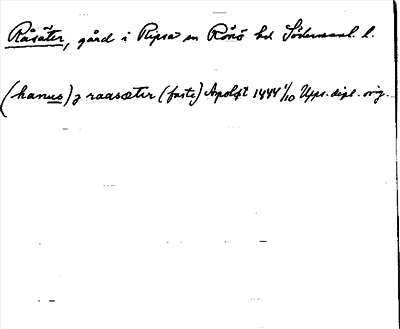 Råsäter, gård i Ripsa sn Rönö hd Södermanl. l.
(hanus) j raasæter (faste) Apoløt 1444 1/10 Upps. dipl. orig.